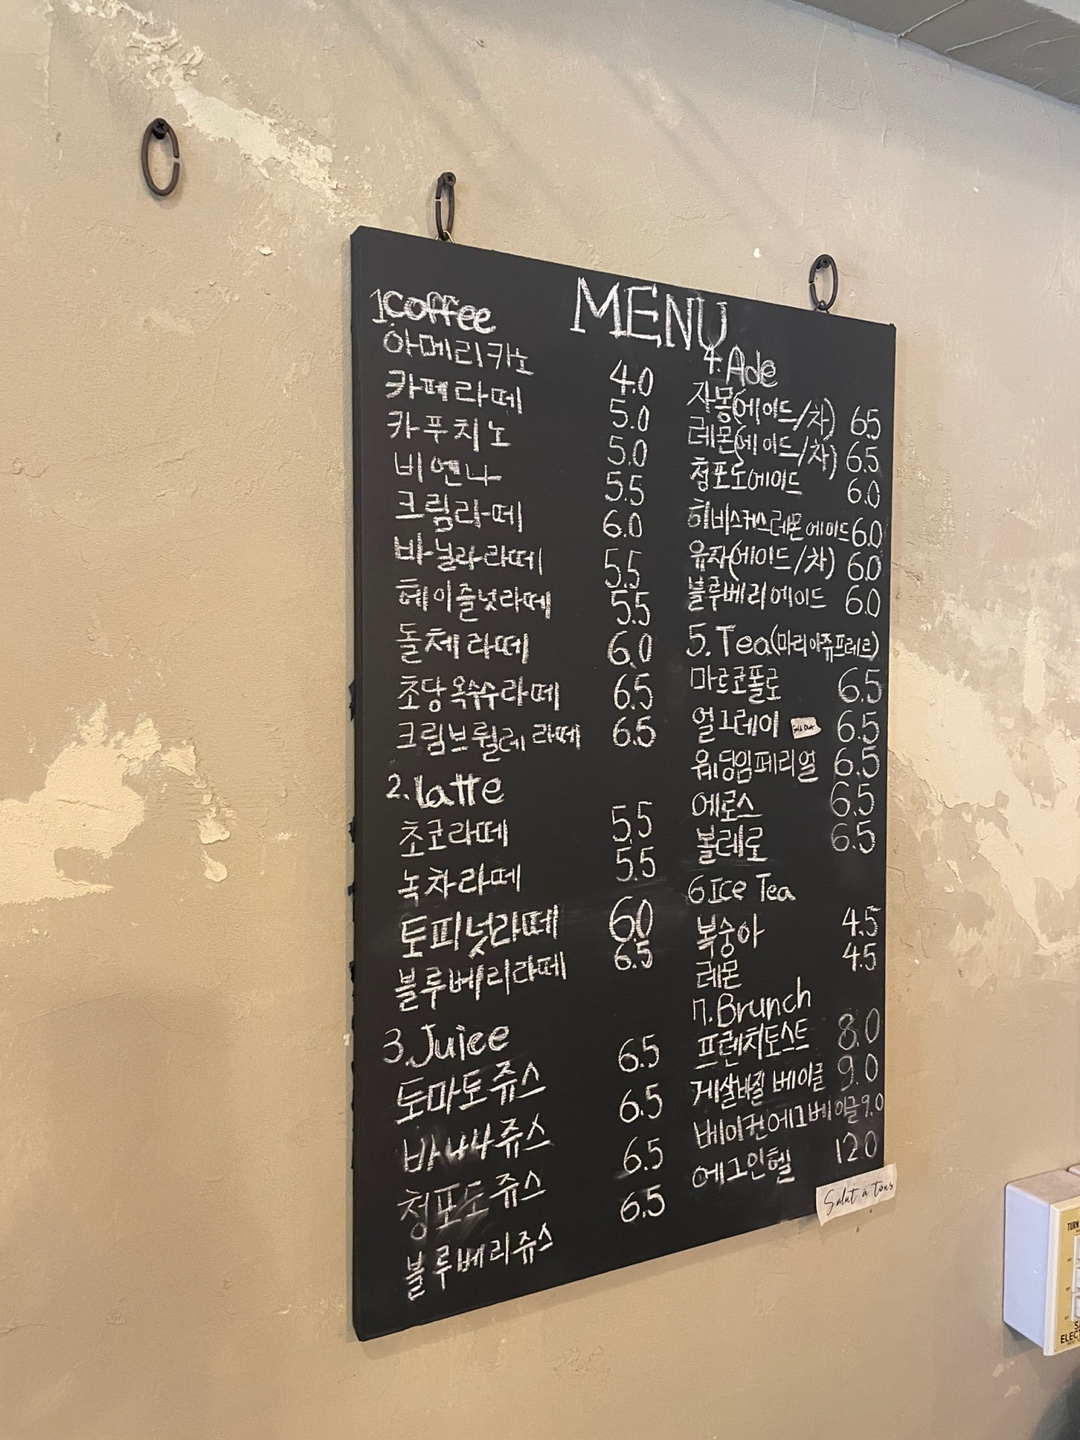 MENU
1.Coffee
아메리카노 4.0
카페라떼 5.0
카푸치노 5.0
비엔나 5.5
크림라떼 6.0
바닐라라떼 5.5
헤이즐넛라떼 5.5
돌체라떼 6.0
초당옥수수라떼 6.5
크림브륄레라떼 6.5
2.latte
초코라떼 5.5
녹차라떼 5.5
토피넛라떼 6.0
블루베리라떼 6.5
3.Juice
토마토쥬스 6.5
바나나쥬스 6.5
청포도쥬스 6.5
블루베리쥬스 6.5
4.Ade
자몽(에이드/차) 6.5
레몬(에이드/차) 6.5
청포도에이드 6.0
히비스커스레몬에이드 6.0
유자(에이드/차) 6.0
블루베리에이드 6.0
5.Tea(마리아쥬프레르)
마르코폴로 6.5
얼그레이 Sold Out 6.5
웨딩임페리얼 6.5
에로스 6.5
볼레로 6.5
6.Ice Tea
복숭아 4.5
레몬 4.5
7.Brunch
프렌치토스트 8.0
게살바질 베이글 9.0
베이컨에그베이글 9.0
에그인헬 12.0
Salut à tous
TURN
ELEC